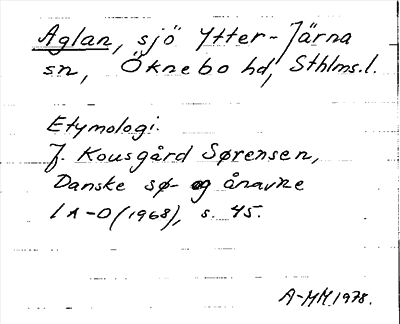 Aglan, sjö Ytter-Järna
sn, Öknebo hd, Sthlms.l.
Etymologi.
J. Kousgård Sørensen,
Danske sø- og ånavne
1 A-O (1968), s. 45.
A-MM.1978.